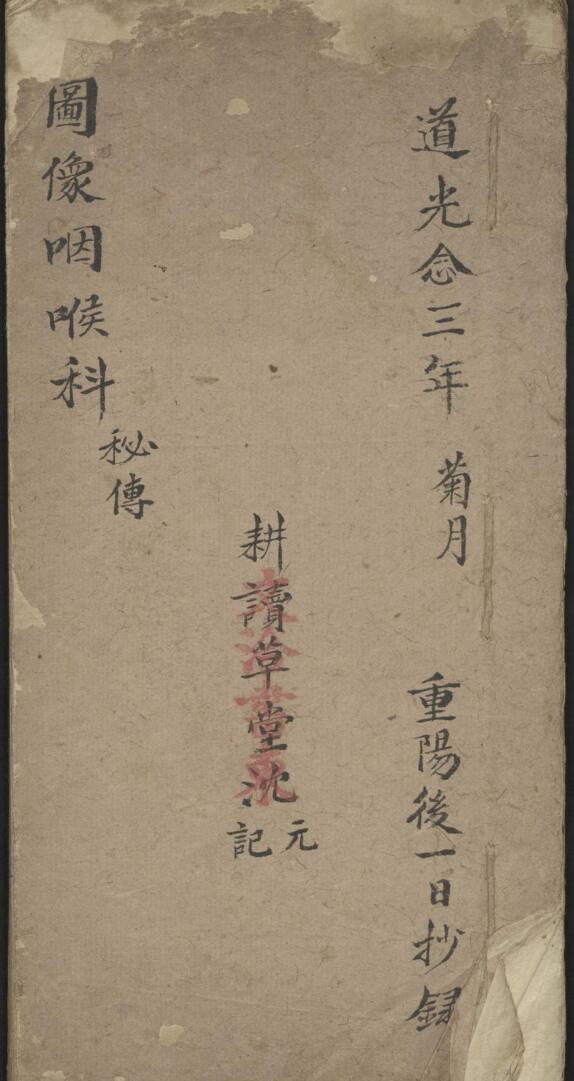 道光念三年 菊月 重陽後一日抄録
耕讀草堂沈元記
圖像咽喉科秘傳